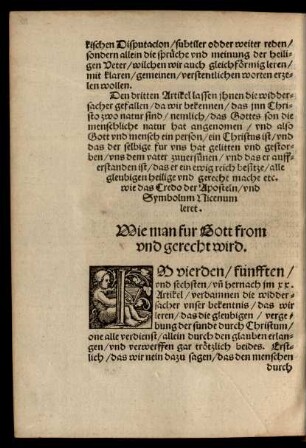 kischen Disputacion/subtiler odder weiter reden/
sondern allein die sprüche vnd meinung der heili-
gen Veter/wilchen wir auch gleichförmig leren/
mit klaren/gemeinen/verstentlichen worten erze-
len wollen.
Den dritten Artikel lassen jhnen die widder-
sacher gefallen/da wir bekennen/das jnn Chri-
sto zwo natur sind/nemlich/das Gottes son die
menschliche natur hat angenomen/vnd also
Gott vnd mensch ein person/ein Christus ist/vnd
das der selbige fur vns hat gelitten vnd gestor-
ben/vns dem vater zuuersünen/vnd das er auff-
erstanden ist/das er ein ewig reich besitze/alle
gleubigen heilige vnd gerecht mache etc.
wie das Credo der Aposteln/vnd
Symbolum Nicenum
leret.
Wie man fur Gott from
vnd gerecht wird.
IM vierden/fünfften/
vnd sechsten/vñ hernach jm xx.
Artikel/verdamnen die widder-
sacher vnser bekentnis/das wir
leren/das die gleubigen/verge-
bung der sunde durch Christum/
one alle verdienst/allein durch den glauben erlan-
gen/vnd verwerffen gar trötzlich beides. Erst-
lich/das wir nein dazu sagen/das den menschen
durch